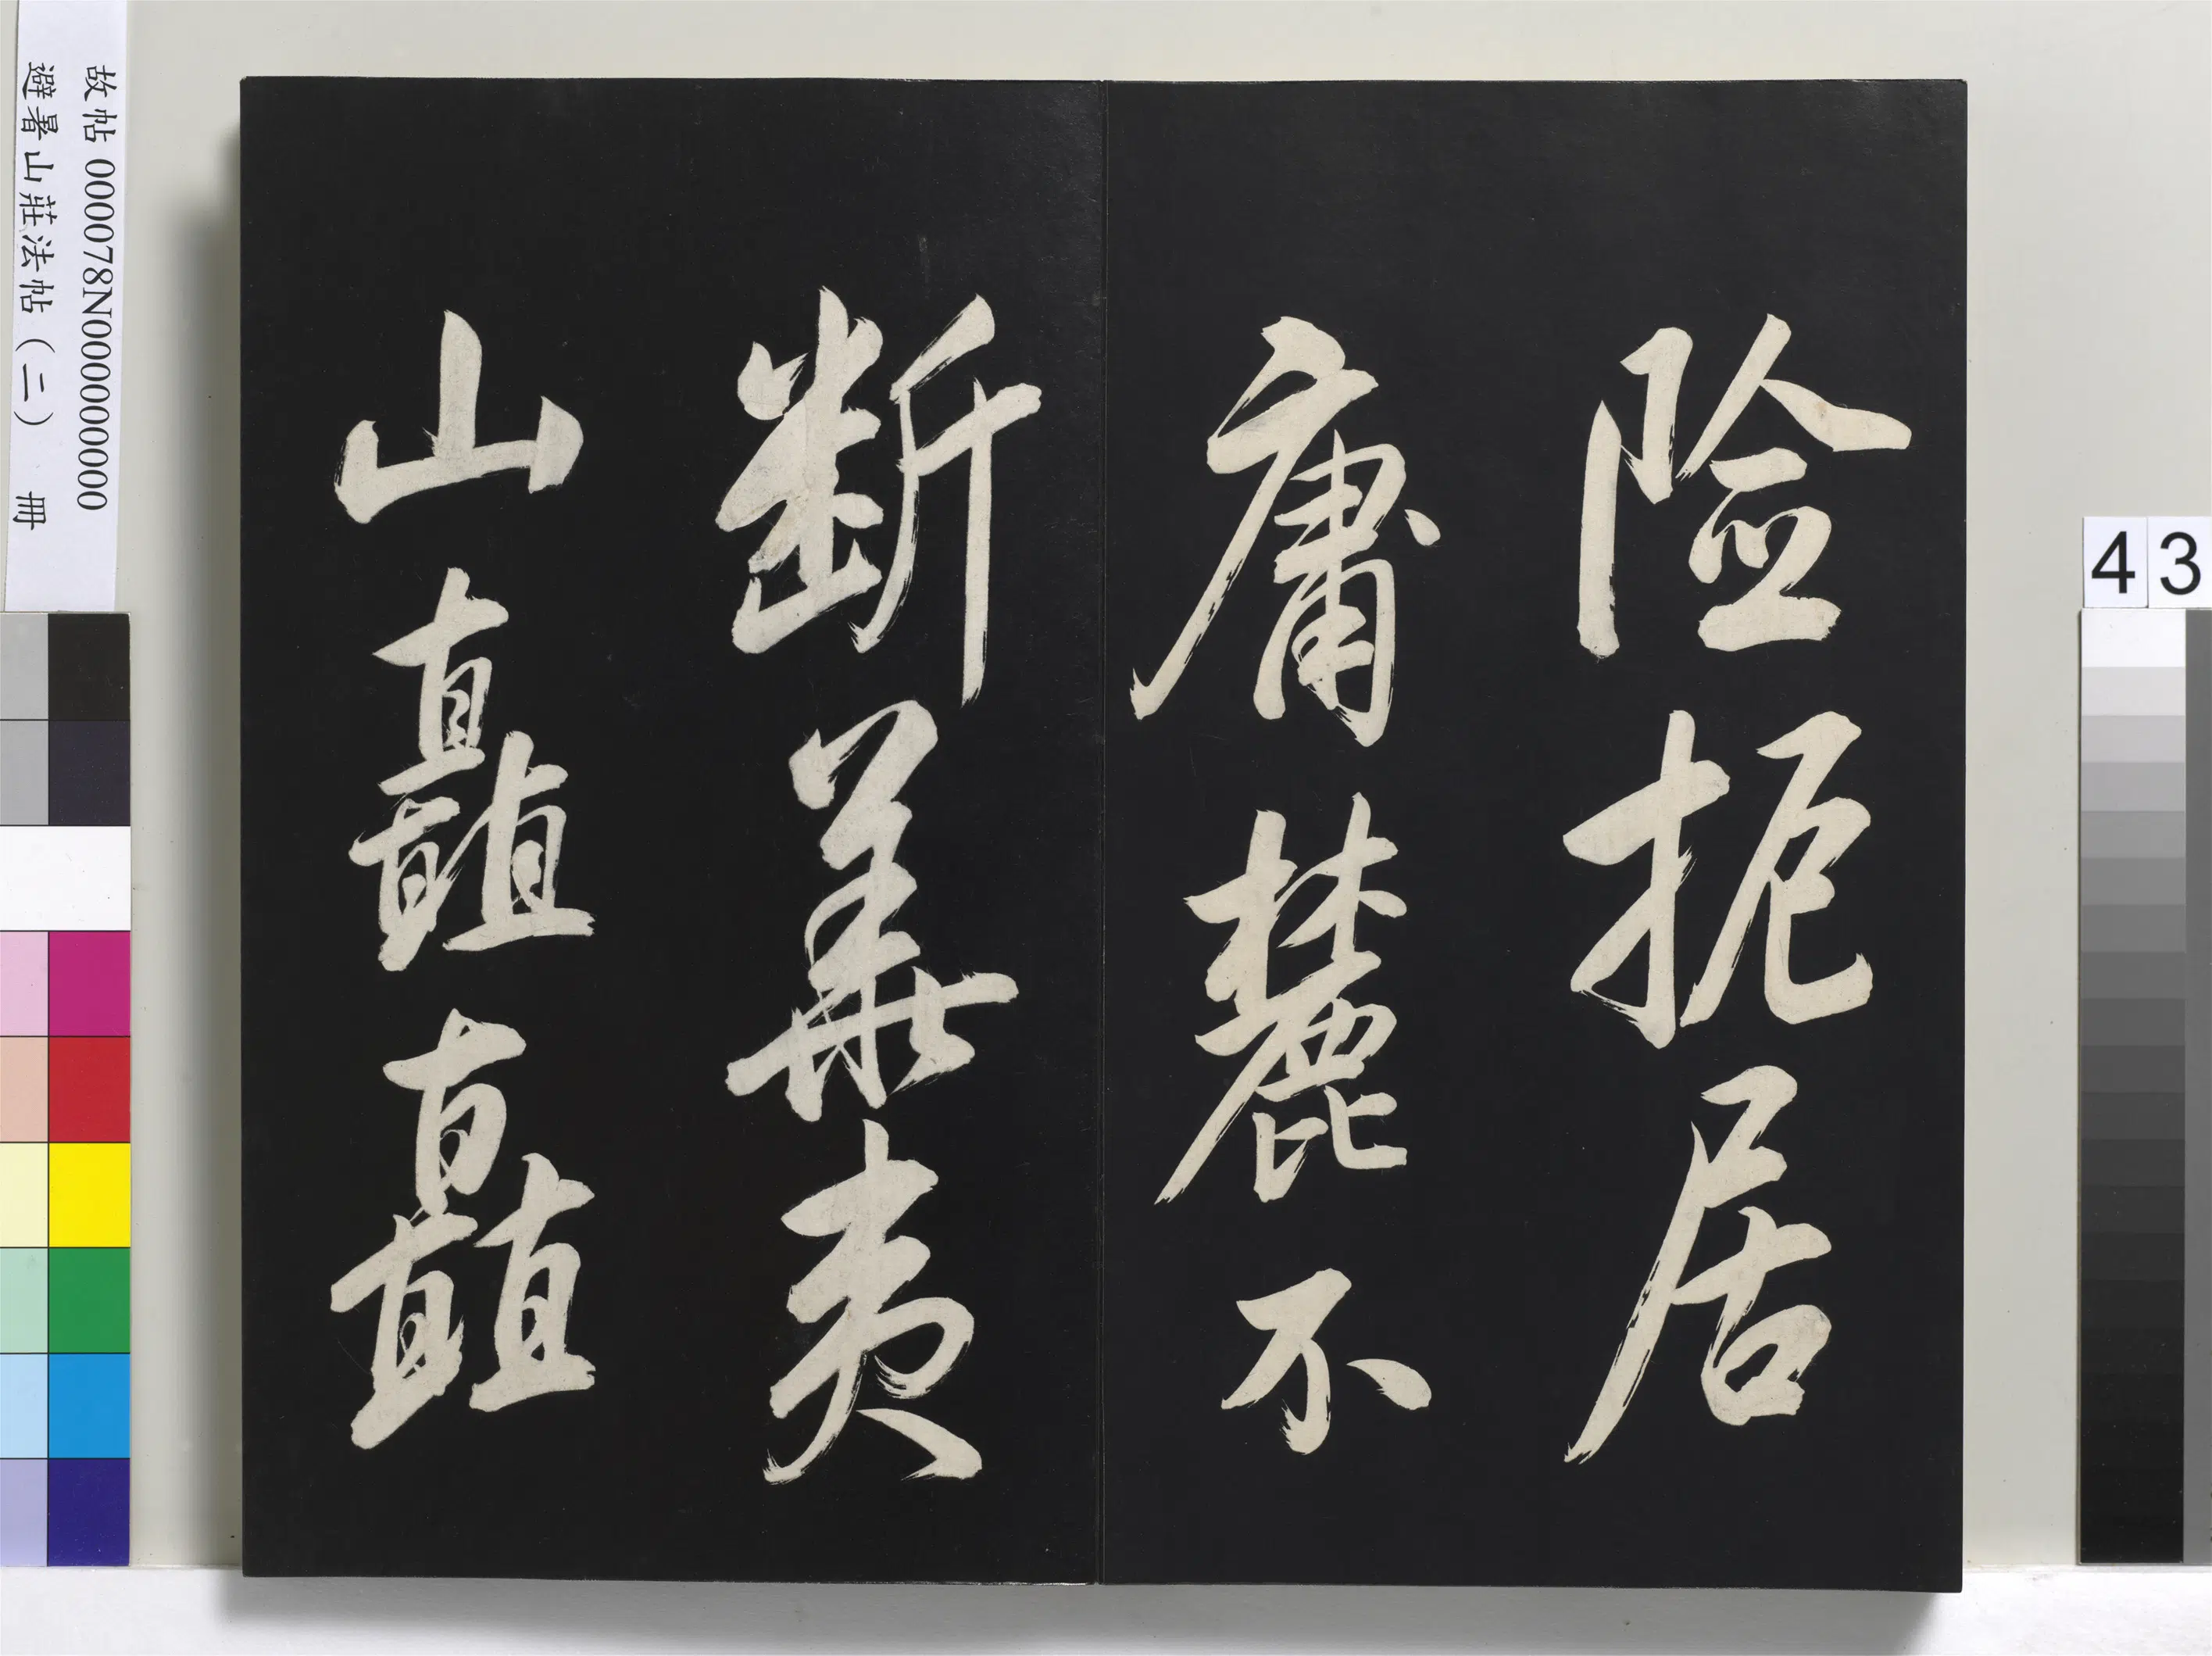 險扼居
庸麓不
断華夷
山矗矗
故帖 000078N000000000
避暑山莊法帖（二） 冊
43